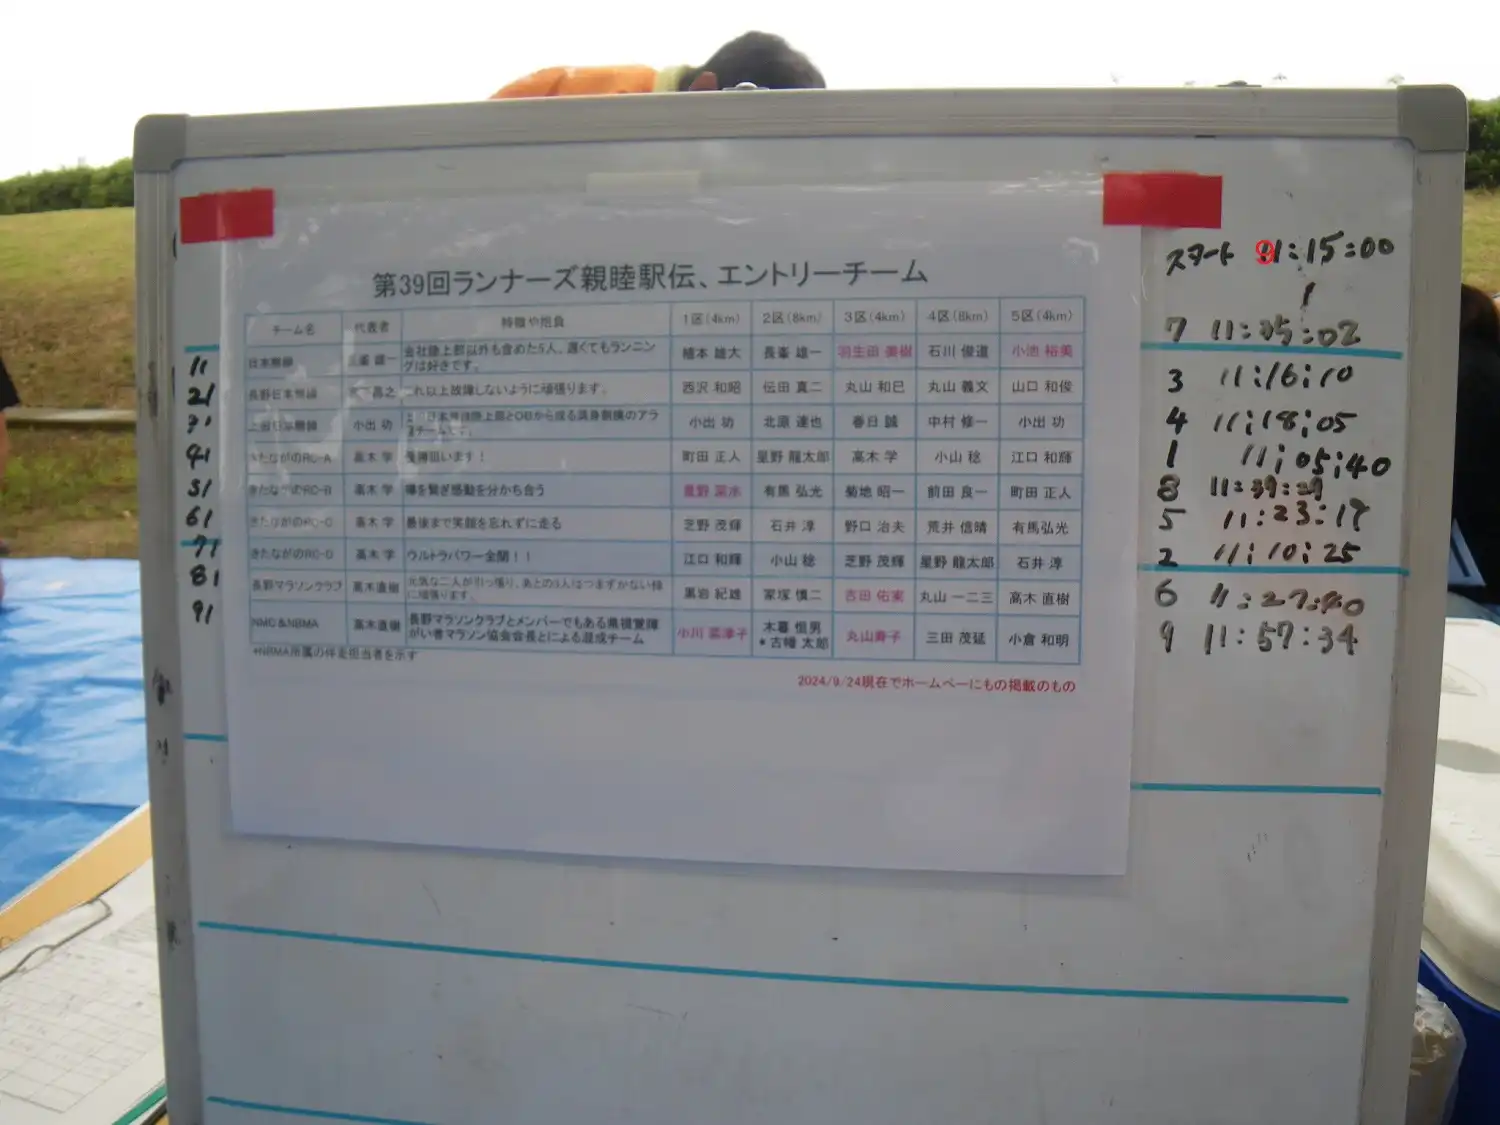 第39回ランナーズ親睦駅伝、エントリーチーム
チーム名 代表者 特徴や抱負 1区(4km) 2区(8km) 3区(4km) 4区(8km) 5区(4km)
日本無線 雄一 会社陸上部以外も含めた5人。遅くてもランニングは好きです。 植本 雄大 長峯 雄一 羽生田 美樹 石川 俊道 小池 裕美
長野日本無線 昌之 これ以上故障しないように頑張ります。 西沢 和昭 伝田 真二 丸山 和巳 丸山 義文 山口 和俊
上田日本無線 小出 功 日本無線陸上部とOBから成る満身創痍のアラ チームです。 小出 功 北原 達也 春日 誠 中村 修一 小出 功
きたながのRC-A 高木 学 優勝狙います！ 町田 正人 星野 龍太郎 高木 学 小山 稔 江口 和輝
きたながのRC-B 高木 学 襷を繋ぎ感動を分かち合う 星野 菜水 有馬 弘光 菊地 昭一 前田 良一 町田 正人
きたながのRC-C 高木 学 最後まで笑顔を忘れずに走る 芝野 茂輝 石井 淳 野口 治夫 荒井 信晴 有馬弘光
きたながのRC-D 高木 学 ウルトラパワー全開！！ 江口 和輝 小山 稔 芝野 茂輝 星野 龍太郎 石井 淳
長野マラソンクラブ 高木直樹 元気な二人が引っ張り、あとの3人はつまずかない様に頑張ります。 黒岩 紀雄 冢塚 慎二 吉田 佑実 丸山 一二三 高木 直樹
NMC＆NBMA 高木直樹 長野マラソンクラブとメンバーでもある県視覚障がい者マラソン協会会長とによる混成チーム 小川 菜津子 木暮 恒男 *古幡 太郎 丸山寿子 三田 茂延 小倉 和明
*NBMA所属の伴走担当者を示す
2024/9/24現在でホームページにもの掲載のもの
11
21
31
41
51
61
71
81
91
スタート 9:15:00
1
7 11:35:02
3 11:16:10
4 11:18:05
1 11:05:40
8 11:39:29
5 11:23:17
2 11:10:25
6 11:27:40
9 11:57:34